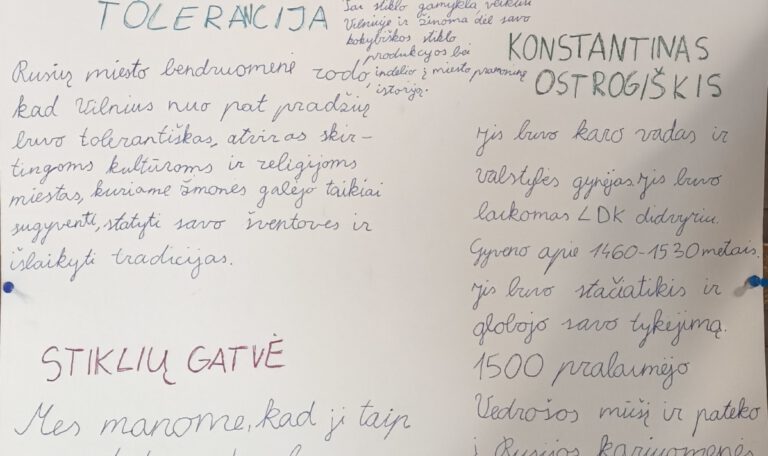 TOLERANCIJA
Rusių miesto bendruomenė rodo,
kad Vilnius nuo pat pradžių
buvo tolerantiškas, atviras skir-
tingoms kultūroms ir religijoms
miestas, kuriame žmonės galėjo taikiai
sugyventi, statyti savo šventoves ir
išlaikyti tradicijas.
stiklo gamykla veikusi
Vilniuje ir žinoma dėl savo
kokybiškos stiklo
produkcijos bei
indėlio į miesto pramoninę
istoriją.
STIKLIŲ GATVĖ
Mes manome, kad ji taip
KONSTANTINAS
OSTROGIŠKIS
Jis buvo karo vadas ir
valstybės gynėjas. Jis buvo
laikomas LDK didvyriu.
Gyveno apie 1460-1530 metais.
Jis buvo stačiatikis ir
globojo savo tykėjimą.
1500 pralaimėjo
Vedrošos mūšį ir pateko
į Rusijos kariuomenės